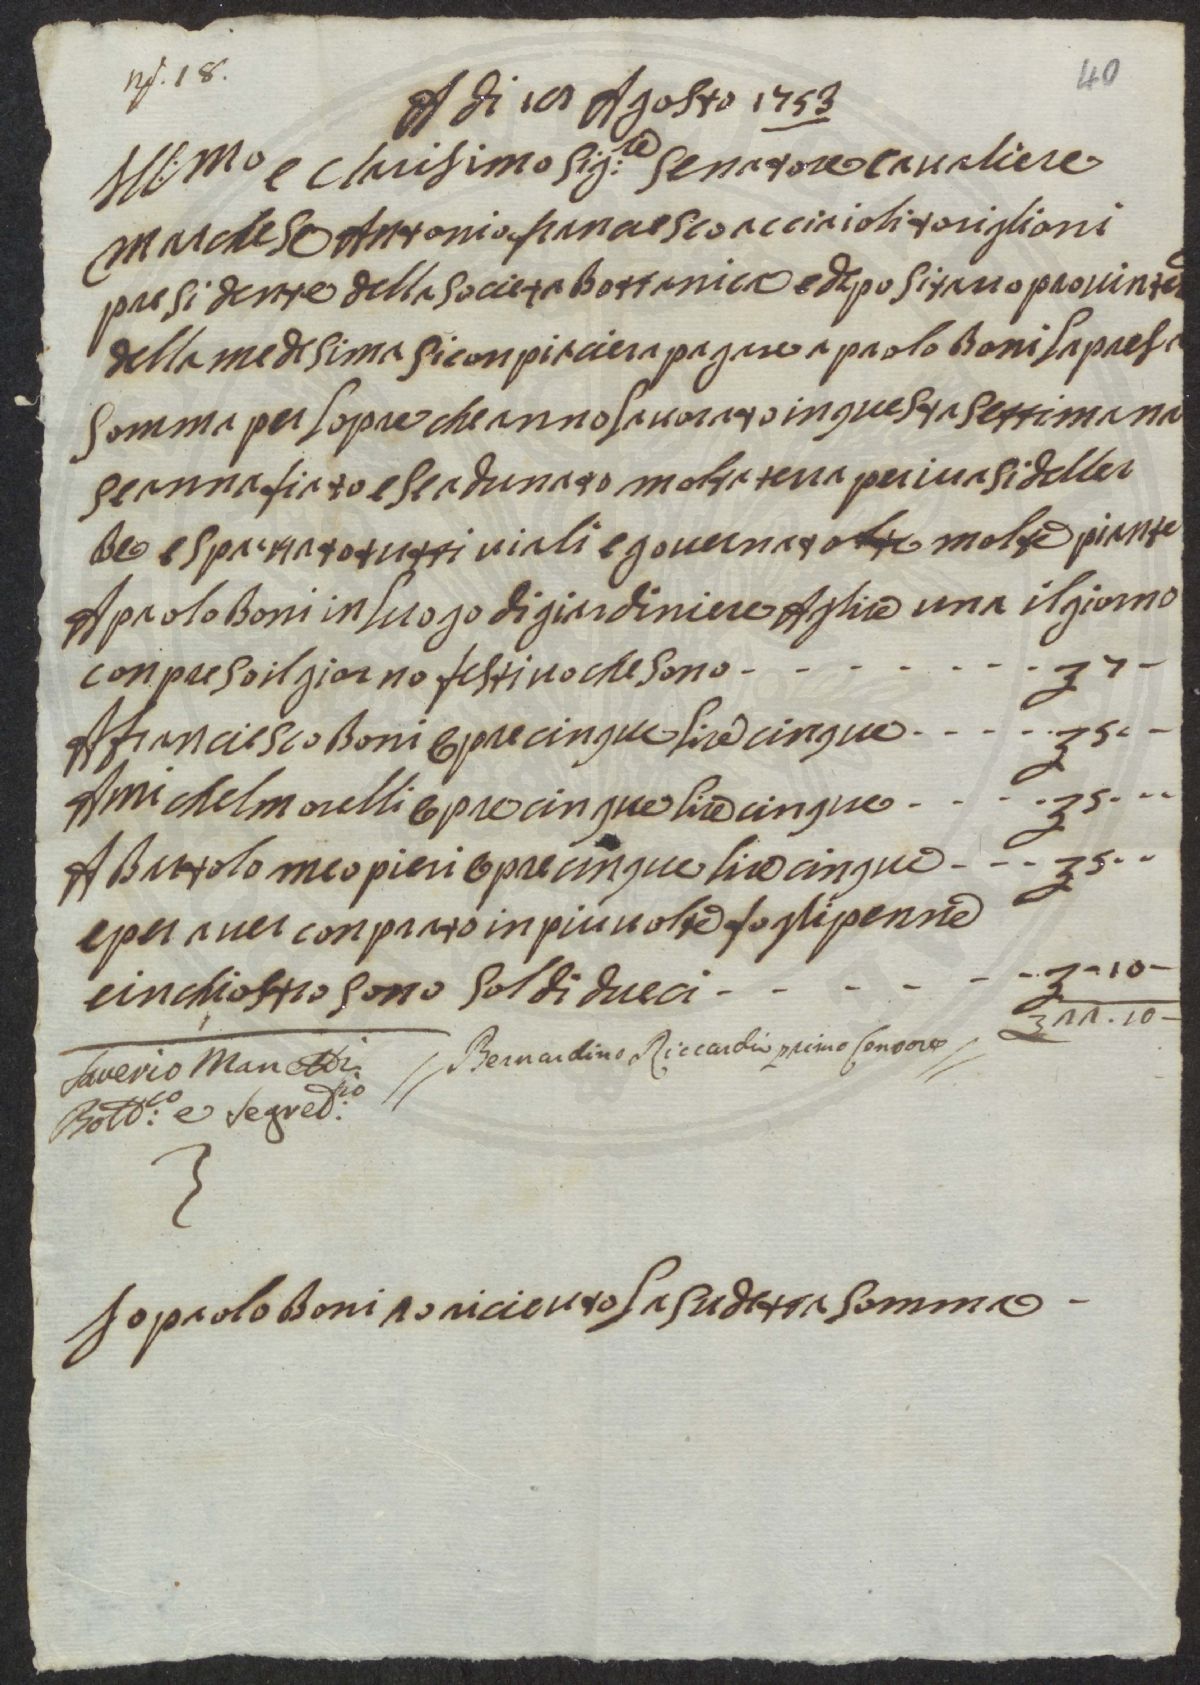 N.º 18.
40
A di 18 Agosto 1753
Ill:mo e Clarisimo Sig:re Senatore Cavaliere
Marchese Antonio franciesco acciaioli toriglioni
presidente della Societa Bottanica e depositario provinte
della medesima si conpiaciera pagare a paolo Boni la presa
Somma per lopre che anno lavorato in questa Settimana
se annafiato e se adunato molta terra per i vasi deller
be e spazzato tutti viali e governato molte piante
A paolo Boni in luogo di giardiniere A lire una il giorno
conpreso il giorno festivo che sono - - - - - - - - £ 7 -
A franciesco Boni opre cinque lire cinque - - - - - £ 5 - -
A michel morelli opre cinque lire cinque - - - - £ 5 - - -
A Bartolomeo pieri opre cinque lire cinque - - - £ 5 - -
e per aver conprato in piu volte fogli penne
e inchiostro sono Soldi dieci - - - - - - - £ - 10 -
£ 22 . 10 -
Saverio Manetti // Bernardino Riccardi primo Censore //
Bott:co e Segret:rio
Io paolo Boni o riceuto la sudetta somma -